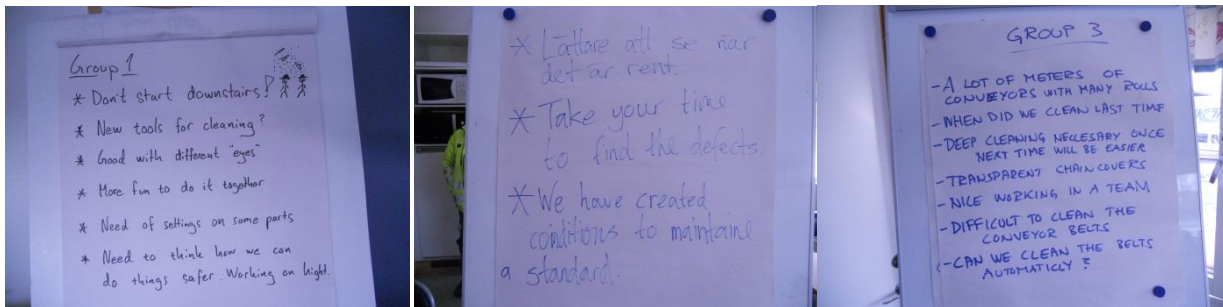 Group 1
* Don't start downstairs!
* New tools for cleaning?
* Good with different "eyes"
* More fun to do it together
* Need of settings on some parts
* Need to think how we can
do things safer. Working on hight.
* Lättare att se när
det är rent.
* Take your time
to find the defects.
* We have created
conditions to maintaine
a standard.
GROUP 3
- A LOT OF METERS OF
CONVEYORS WITH MANY ROLLS
- WHEN DID WE CLEAN LAST TIME
- DEEP CLEANING NECLESARY ONCE
NEXT TIME WILL BE EASIER
- TRANSPARENT CHAINCOVERS
- NICE WORKING IN A TEAM
- DIFFICULT TO CLEAN THE
CONVEYOR BELTS
- CAN WE CLEAN THE BELTS
AUTOMATICLY?